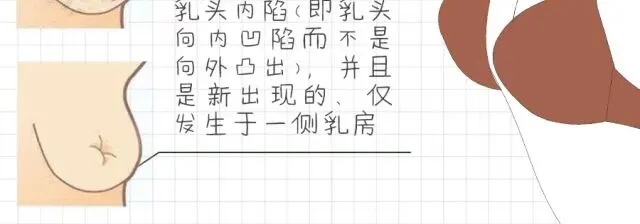 乳头内陷(即乳头
向内凹陷而不是
向外凸出)，并且
是新出现的、仅
发生于一侧乳房